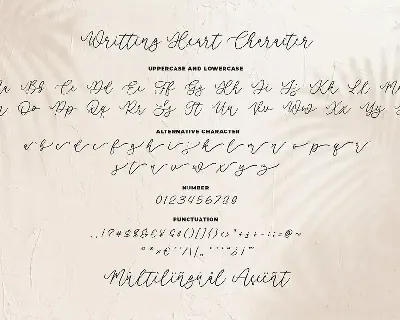 Writting Heart Character
UPPERCASE AND LOWERCASE
Bb Cc Dd Ee Ff Gg Hh Ii Jj Kk Ll
Oo Pp Qq Rr Ss Tt Uu Vv Ww Xx Yy
ALTERNATIVE CHARACTER
a b c d e f g h i j k l m n o p q r
s t u v w x y z
NUMBER
0123456789
PUNCTUATION
Multilingual Accent